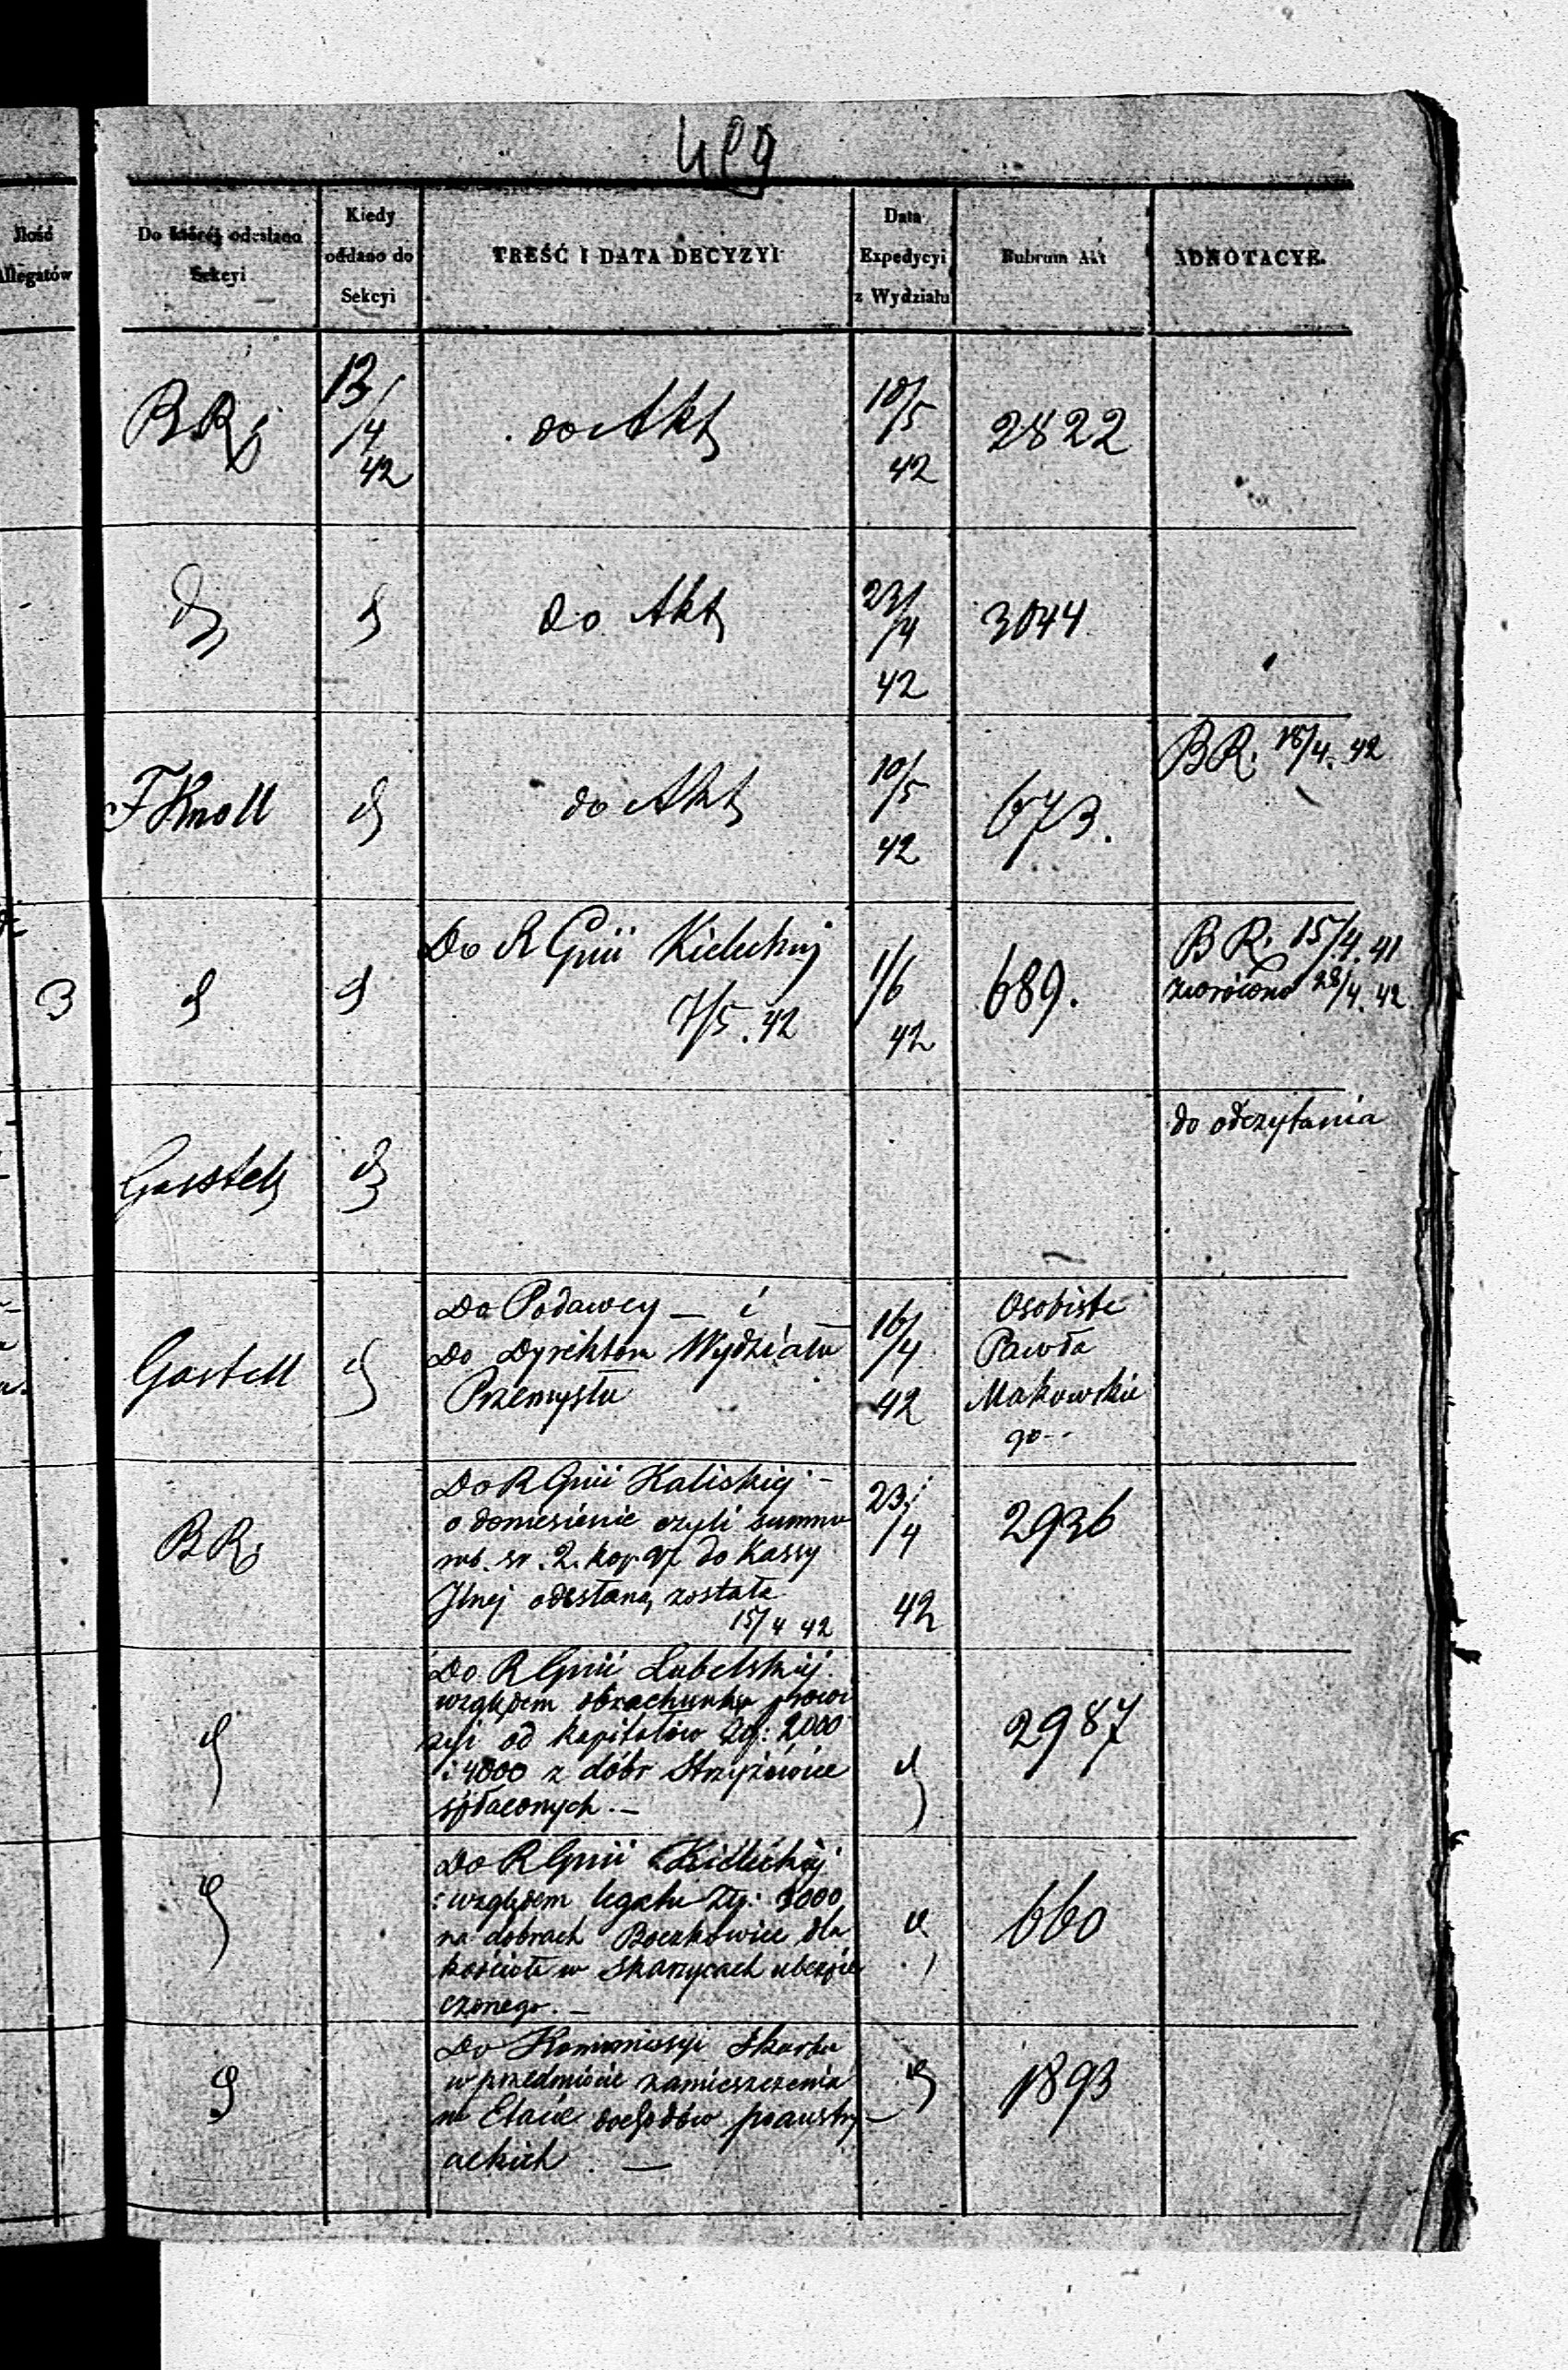 Ilość
Allegatów
3
Do której odesłano
Sekcyi
Kiedy
oddano do
Sekcyi
TREŚĆ I DATA DECYZYI
Data
Expedycyi
z Wydziału
Rubrum Akt
ADNOTACYE.
BR
13/4 42
do Akt
10/5 42
2822
do Akt
23/4 42
3044
F Knoll
do Akt
10/5 42
673.
BR. 18/4. 42
Do R Gnii Kieleckiej
7/5. 42
1/6 42
689.
BR. 15/4. 41
zwrócono 28/4. 42
do odczytania
Gastell
Do Podawcy — i
Do Dyrektora Wydziału
Przemysłu
16/4 42
Osobiste
Pawła
Makowskie
go
BR
Do R Gnii Kaliskiej —
o doniesienie czyli summa
rub. sr. 2. kop. 97 do Kassy
odesłaną została
15/4 42
23/4
42
2936
Do R Gnii Lubelskiej.
względem obrachunku prowi
zyi od kapitałów Zł: 2000
i 4000 z dóbr Strzyżowice
spłaconych. —
2987
Do R Gnii Kieleckiej
względem legatu Złp: 3000
na dobrach Boczkowice dla
kościoła w Skarzycach ubezpie
czonego. —
660
Do Kommissyi Skarbu
w przedmiocie zamieszczenia
w Etacie dochodów poaustry
ackich. —
1893